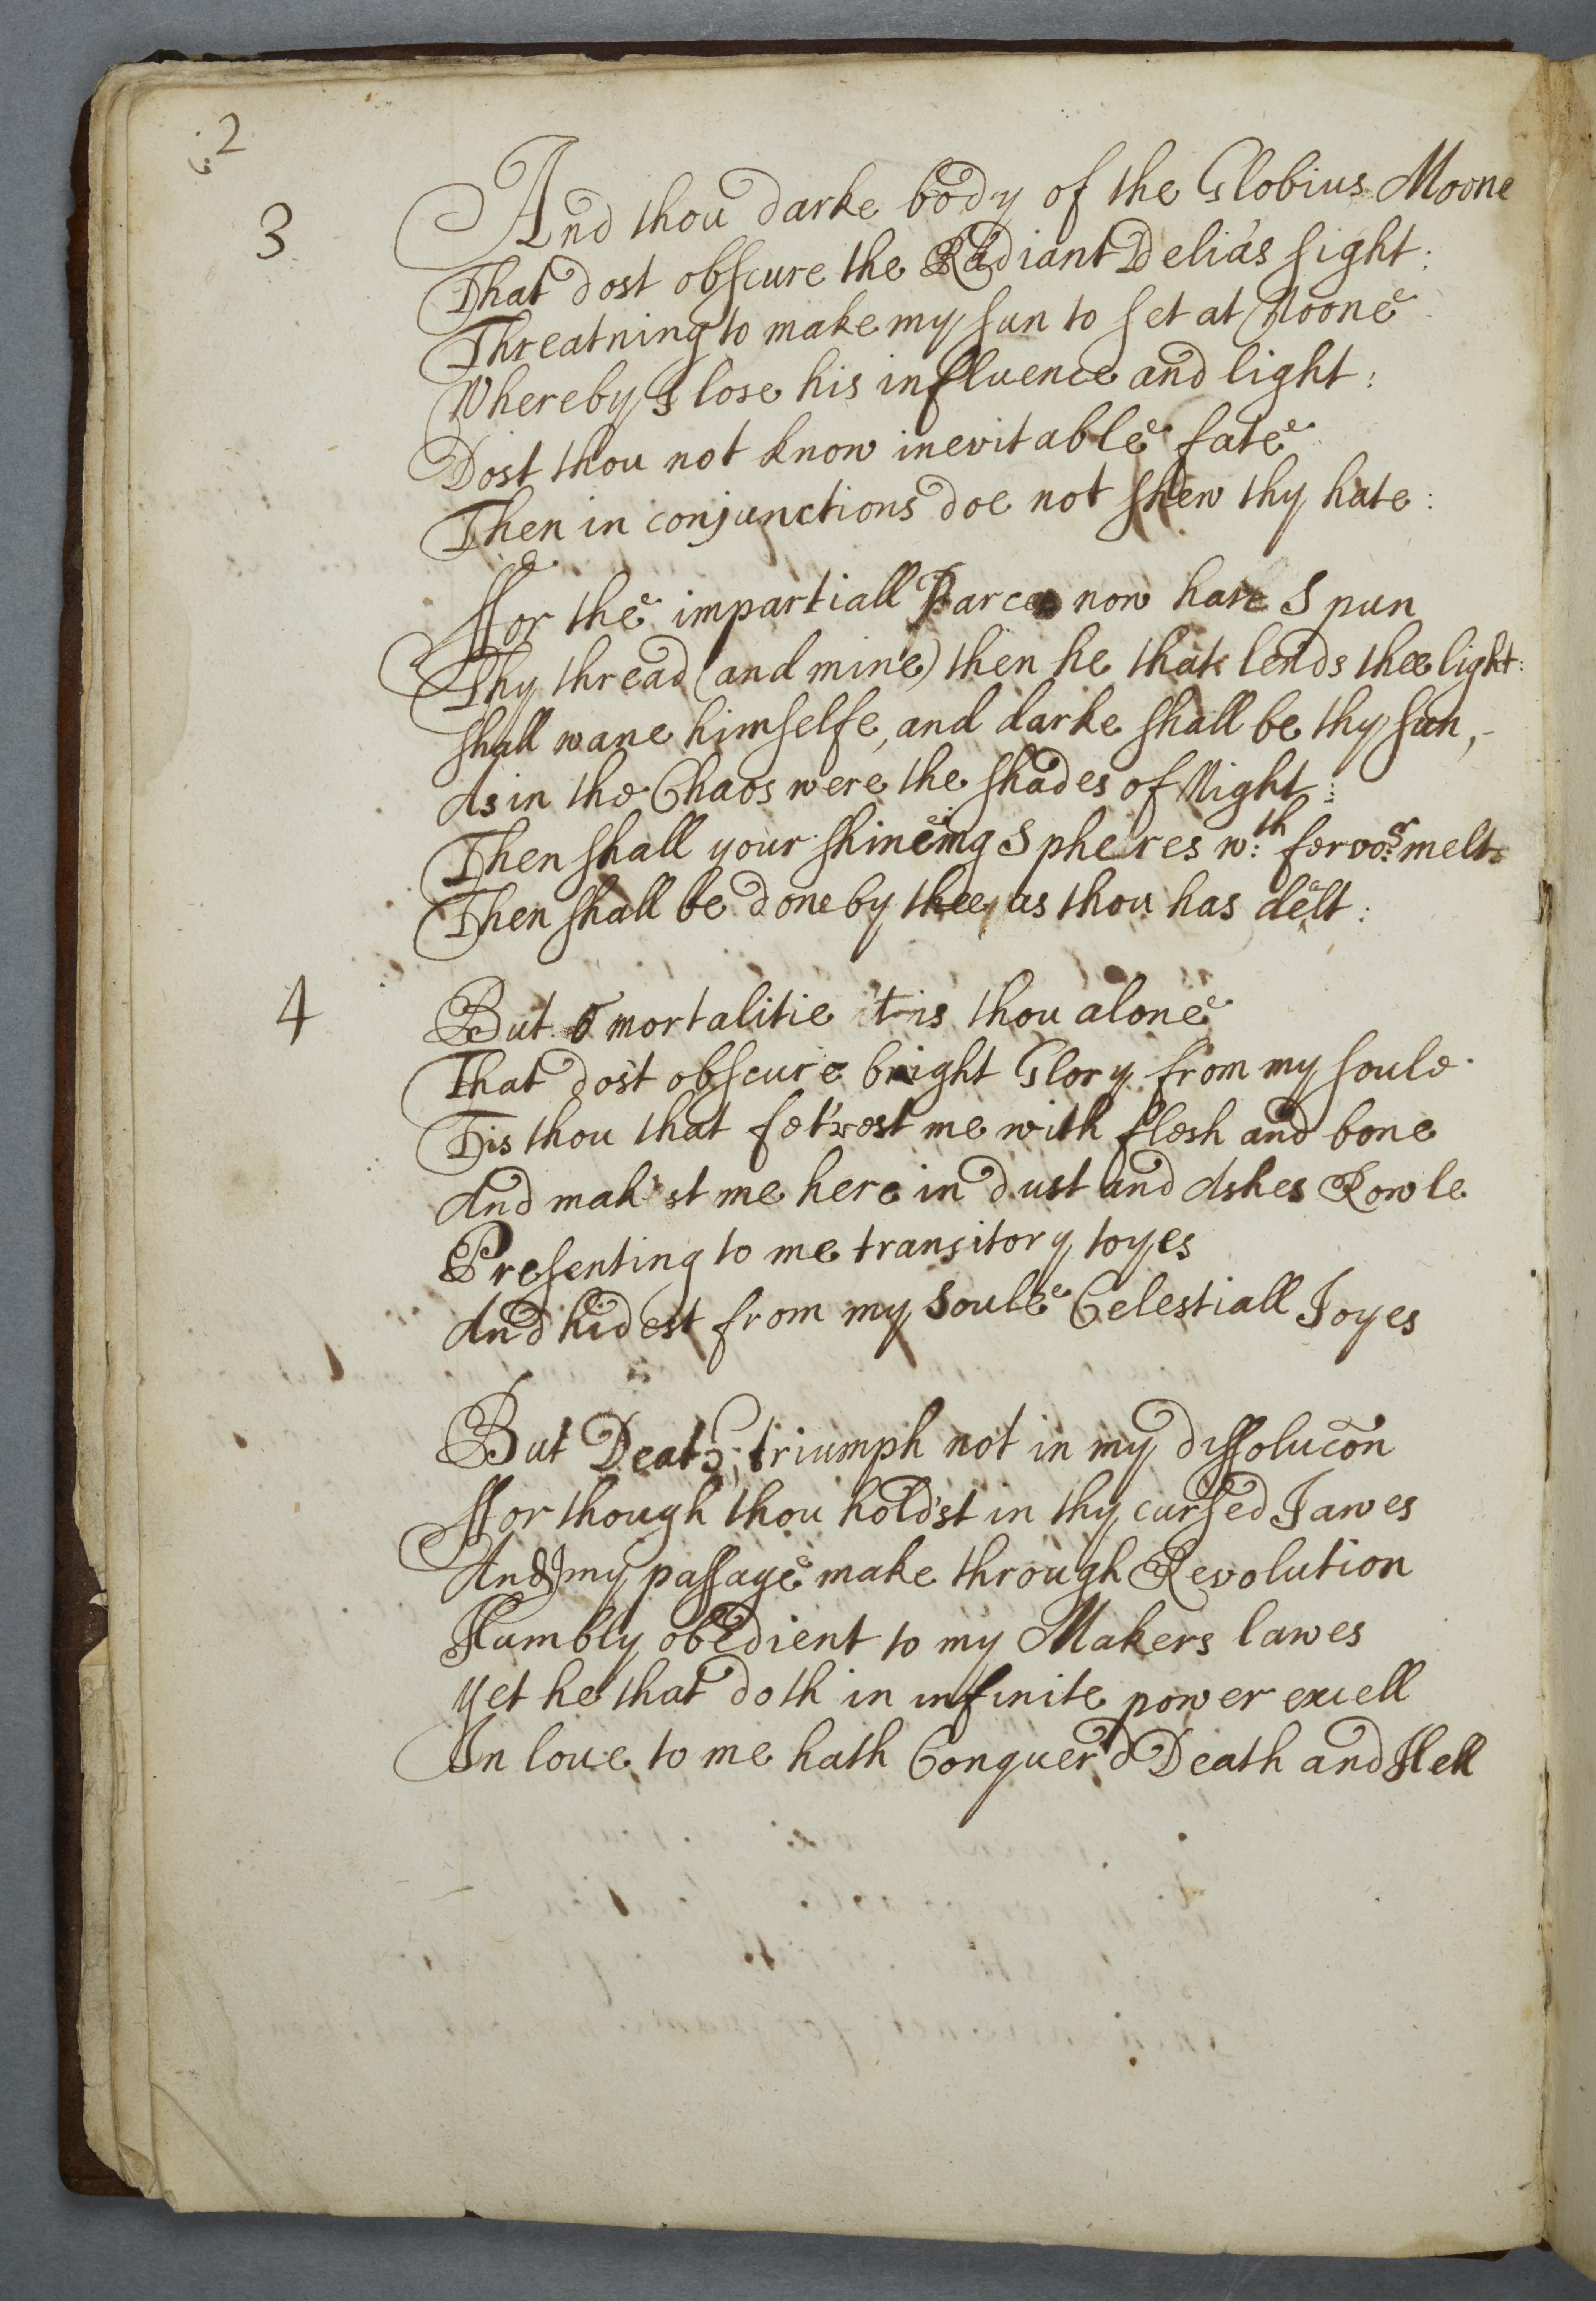 2
3
And thou darke body of the Globius Moone
That dost obscure the Radiant Delia's sight:
Threatning to make my sun to set at Noone
Whereby I lose his influence and light:
Dost thou not know inevitable fate
Then in conjunctions doe not shew thy hate:
ffor the impartiall Parcae now have Spun
Thy thread (and mine) then he that lends thee light:
shall wane himselfe, and darke shall be thy sun,-
As in the Chaos were the shades of Night:
Then shall your shineing Spheires wth: fervor: melt
Then shall be done by thee, as thou has delt:
4
But ô mortalitie t'is thou alone
That dost obscure bright Glory from my soule.
Tis thou that fet'rest me with flesh and bone
And mak'st me here in dust and Ashes Rowle
Presenting to me transitory toyes
And hidest from my Soule Celestiall Joyes
But Death, triumph not in my dissolucõn
ffor though thou hold'st in thy cursed Jawes
And I my passage make through Revolution
Humbly obedient to my Makers lawes
Yet he that doth in infinite power excell
In loue to me hath Conquer'd Death and Hell